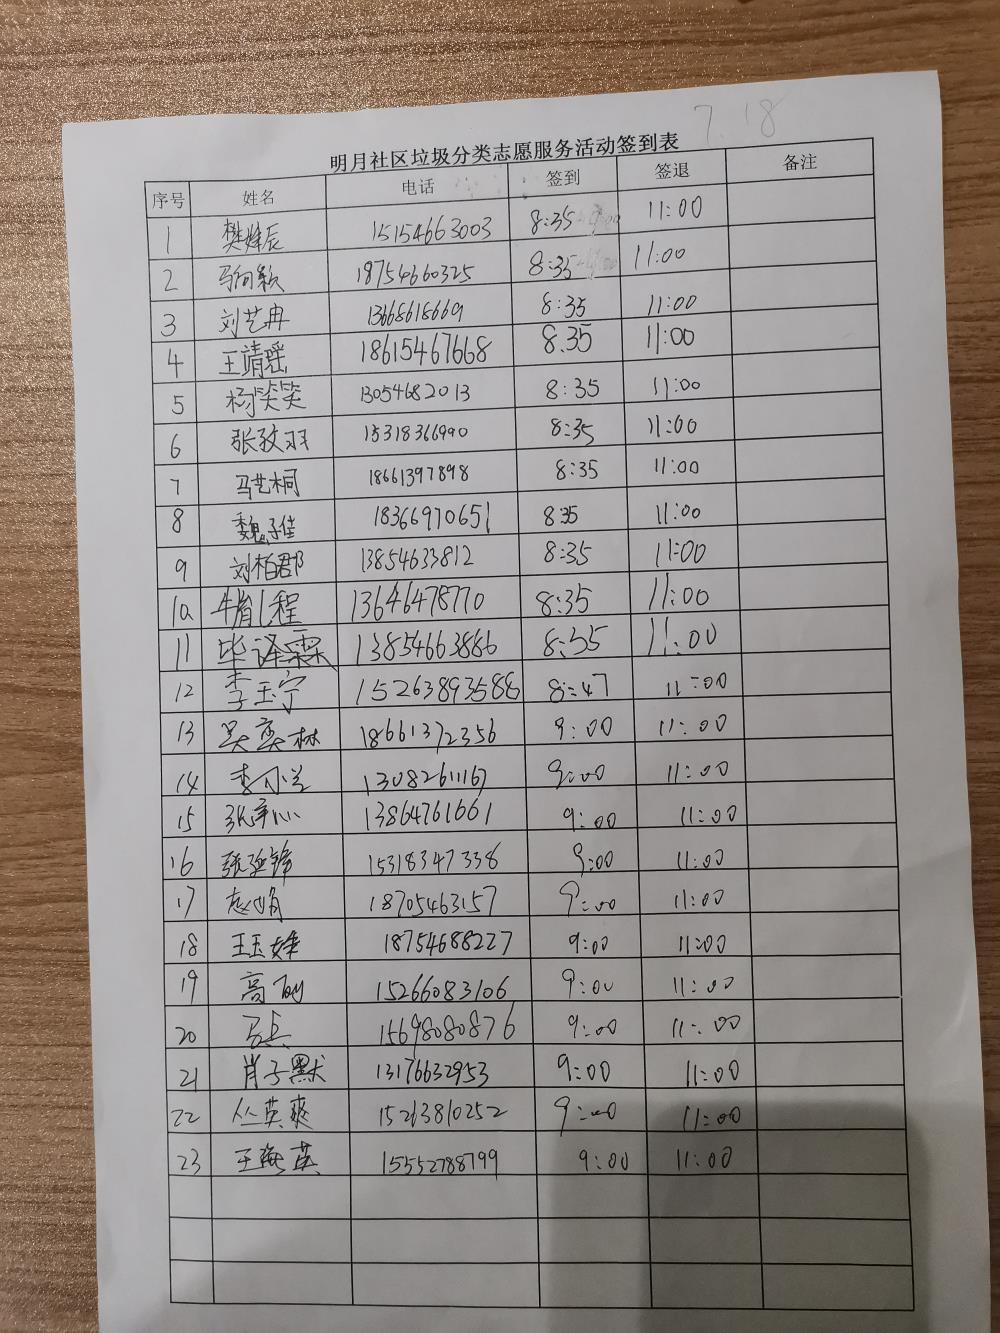 7.18
明月社区垃圾分类志愿服务活动签到表
序号 姓名 电话 签到 签退 备注
1 樊烽辰 15154663003 8:35 11:00
2 马向颖 18754660325 8:35 11:00
3 刘艺冉 13668618669 8:35 11:00
4 王靖瑶 18615467668 8.35 11:00
5 杨笑笑 13054682013 8:35 11:00
6 张孜羽 15318366990 8:35 11:00
7 马艺桐 18661397898 8:35 11:00
8 魏子佳 18366970651 8:35 11:00
9 刘柏郡 13854633812 8:35 11:00
10 程 13646478770 8:35 11:00
11 毕泽霖 13854663886 8:35 11:00
12 李玉宁 15263893588 8:47 11:00
13 吴奕林 18661372356 9:00 11:00
14 李小兰 13082611167 9:00 11:00
15 张 13864761661 9:00 11:00
16 张延锋 15318347338 9:00 11:00
17 18705463157 9:00 11:00
18 王玉 18754688227 9:00 11:00
19 高丽 15266083106 9:00 11:00
20 马兵 15698080876 9:00 11:00
21 肖子默 13176632953 9:00 11:00
22 丛英爽 15263810252 9:00 11:00
23 王海英 15552788799 9:00 11:00